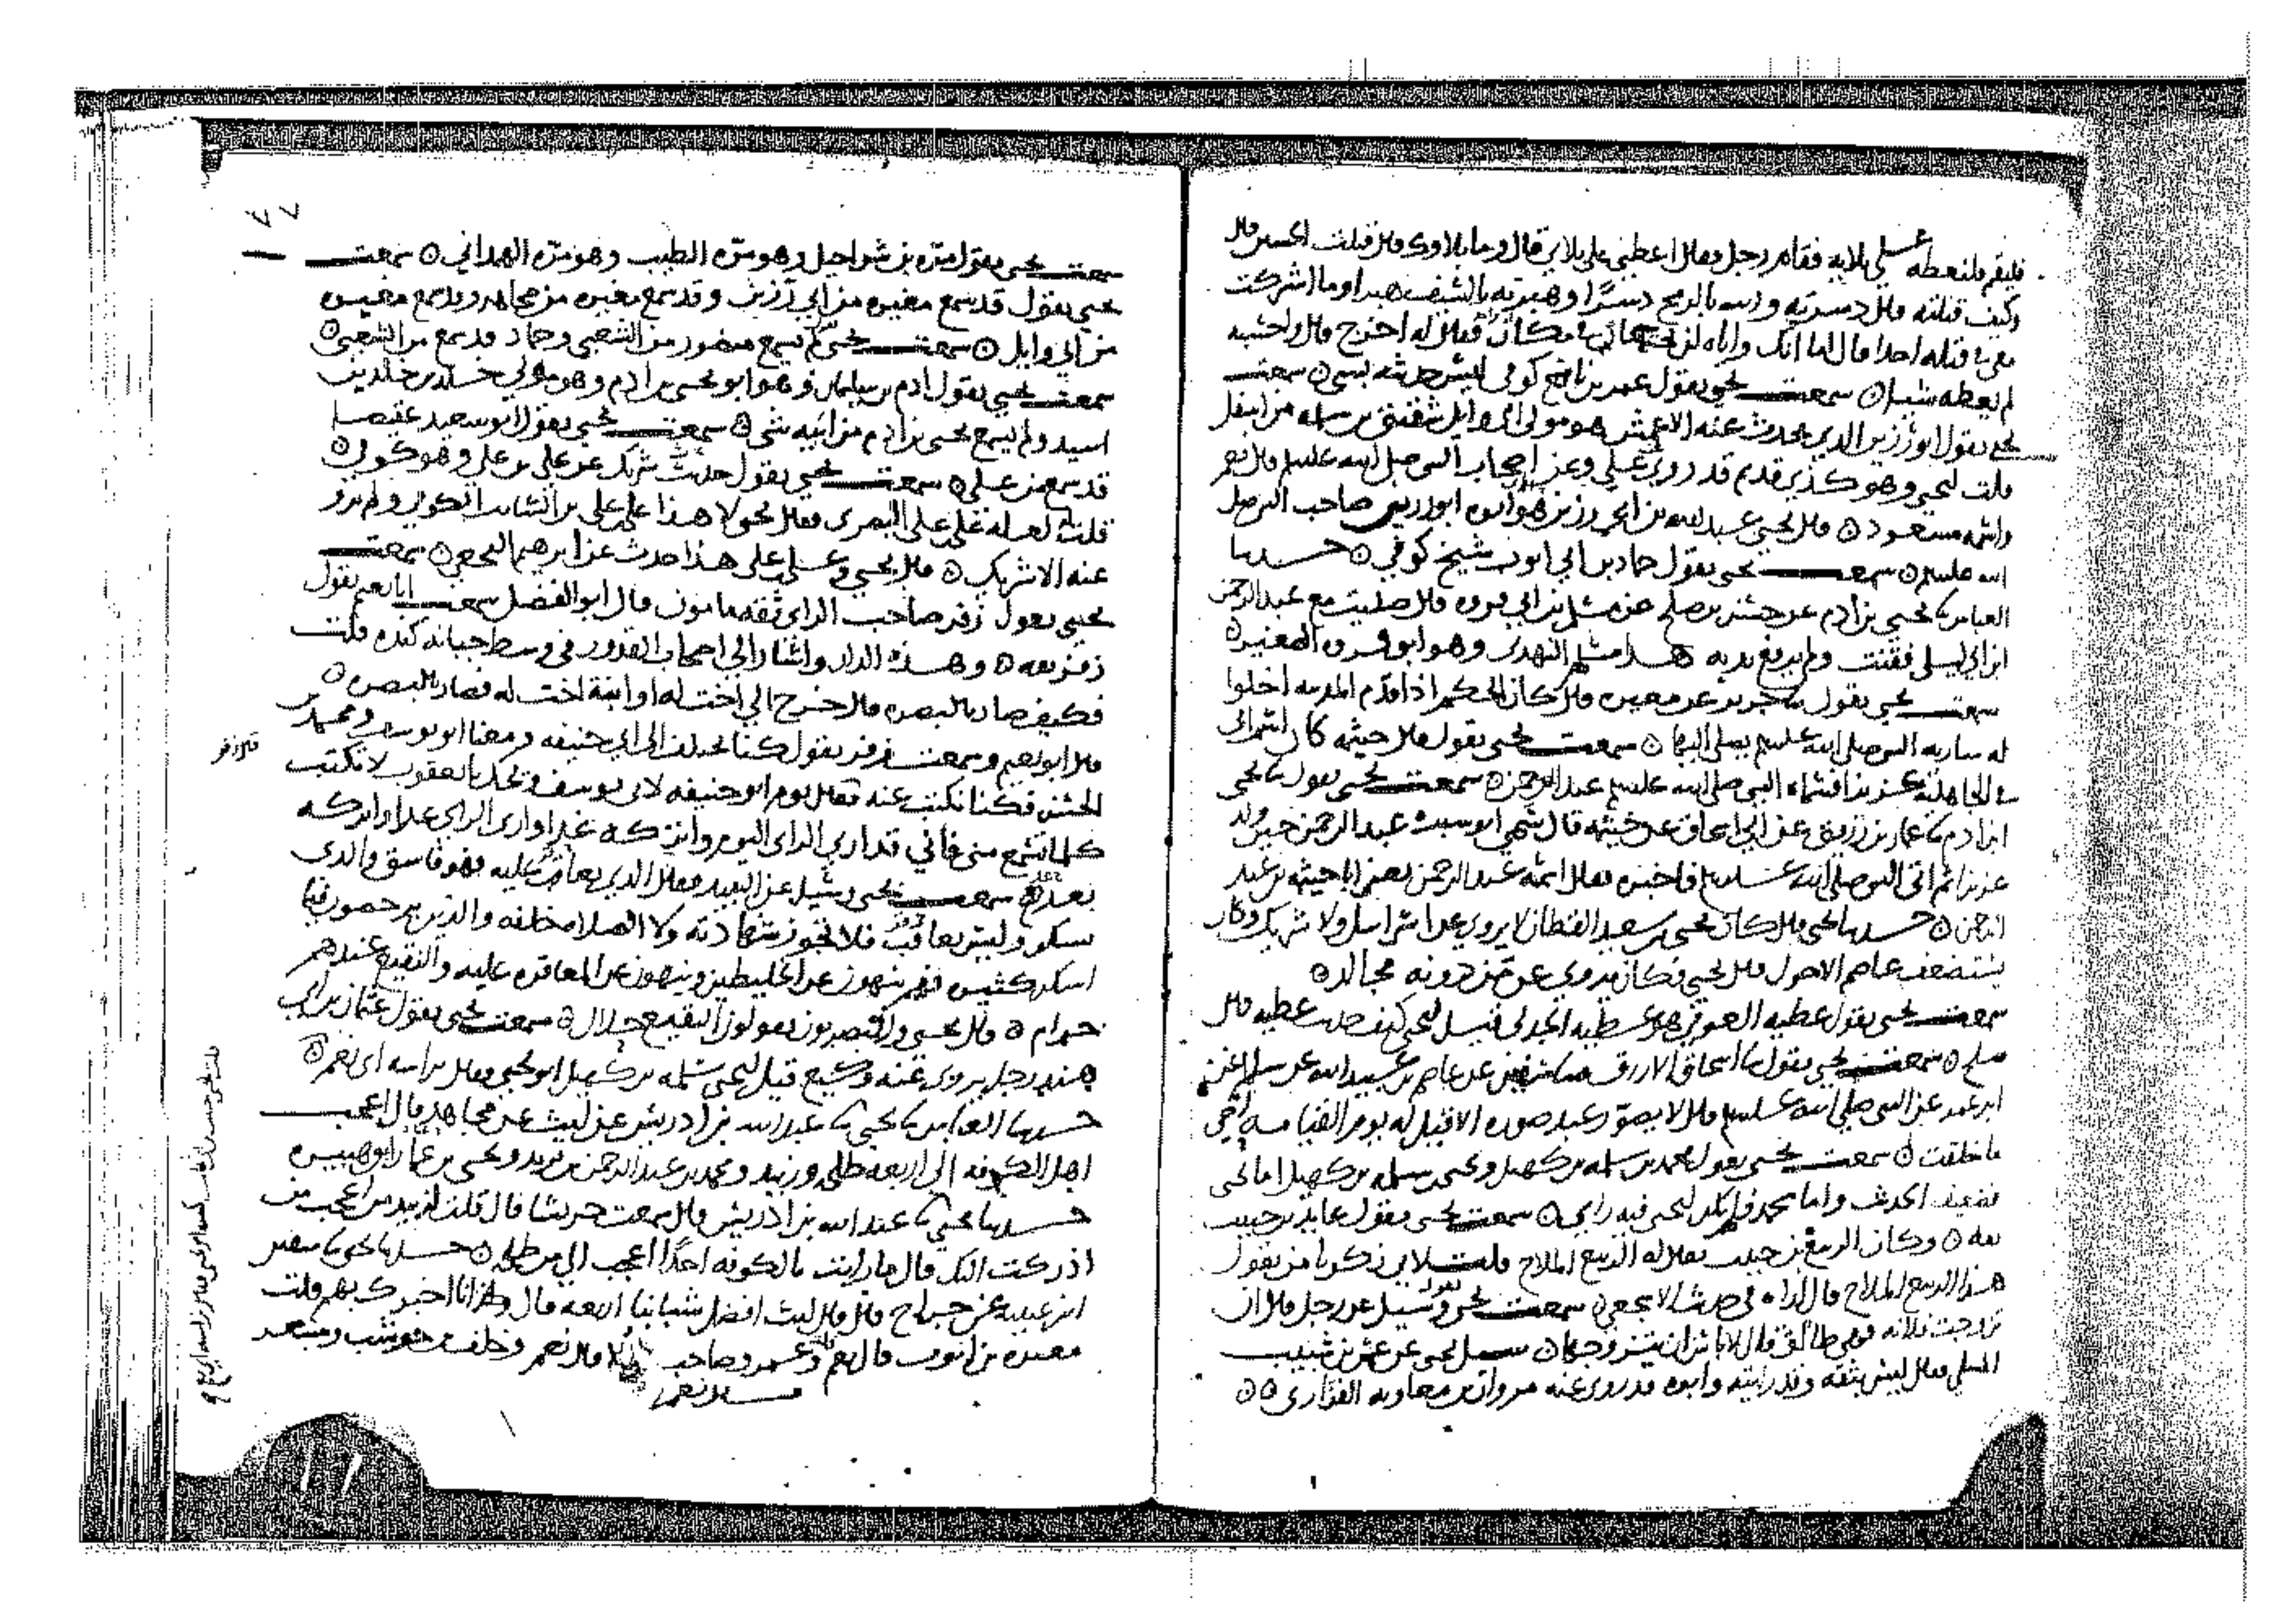 فليقم فلنعطه على بلايه فقام رجل وقال اعطني على بلاي قال وما بلاوك قال قتلت الحسين قال
وكيف قتلته قال دسرته والله بالرمح دسرا وهبرته بالسيف هبرا وما اشركت
معي في قتله احدا قال اما انك واياه لن تجتمعا في مكان فقال له اخرج قال واحسبه
لم يعطه شيا ○ سمعت يحيى يقول عمر بن نافع كوفي ليس حديثه بشي ○ سمعت
يحيى يقول ابو رزين الذي يحدث عنه الاعمش هو مولى ابي وايل شقيق بن سلمه من اسفل
قلت ليحيى وهو كذي قديم قد روى عن علي وعن اصحاب النبي صلى الله عليه وسلم قال نعم
واسمه مسعود ○ قال يحيى عبد الله بن ابي رزين هو ابوه ابو رزين صاحب النبي صلى
الله عليه وسلم ○ سمعت يحيى يقول حماد بن ابي ايوب شيخ كوفي ○ حدثنا
العباس نا يحيى بن آدم عن حسن بن صلح عن مسلم بن ابي فروه قال صليت مع عبد الرحمن
ابن ابي ليلى فقنت ولم يرفع يديه هذا مسلم النهدي وهو ابو فروه الصغير ○
سمعت يحيى يقول نا جرير عن مغيره قال كان الحكم اذا قدم المدينه اخلوا
له ساريه النبي صلى الله عليه وسلم يصلي اليها ○ سمعت يحيى يقول قال خيثمه كان اسم ابي
في الجاهلية عزيز فسماه النبي صلى الله عليه وسلم عبد الرحمن ○ سمعت يحيى يقول نا يحيى
ابن آدم نا عمار بن رزيق عن ابي اسحاق عن خيثمه قال سمى ابو سبرة عبد الرحمن حين ولد
عزيزا ثم اتى النبي صلى الله عليه وسلم فاخبره فقال اسمه عبد الرحمن يعني ابا خيثمه بن عبد
الرحمن ○ حدثنا يحيى قال كان يحيى بن سعيد القطان لا يروي عن اسرائيل ولا شريك وكان
يستضعف عاصم الاحول قال يحيى وكان يروي عن من دونه مجالد ○
سمعت يحيى يقول عطيه العوفي هو عطيه الجدلي قيل ليحيى كيف حديث عطيه قال
صلح ○ سمعت يحيى يقول نا اسحاق الازرق نا شريك عن عاصم بن عبيد الله عن سالم عن
ابن عمر عن النبي صلى الله عليه وسلم قال لا يصور عبد صوره الا قيل له يوم القيامه احي
ما خلقت ○ سمعت يحيى يقول محمد بن سلمه بن كهيل ويحيى بن سلمه بن كهيل اما يحيى
فضعيف الحديث واما محمد فلم يكن ليحيى فيه راي ○ سمعت يحيى يقول عايذ بن حبيب
ثقه ○ وكان الربيع بن حبيب يقال له الربيع الملاح قلت لابي زكريا من يقول
هذا الربيع الملاح قال اراه في حديث الاشجعي ○ سمعت يحيى يقول وسيل عن رجل قال ان
تزوجت فلانه فهي طالق قال لا باس ان يتزوجها ○ سيل يحيى عن عمر بن شبيب
المسلي فقال ليس بثقه وقد رايته وابوه قد روى عنه مروان بن معاويه الفزاري ○○
٧٧
سمعت يحيى يقول مره بن شراحيل وهو مره الطيب وهو مره الهمداني ○ سمعت
يحيى يقول قد سمع مغيره من ابي رزين وقد سمع مغيره من مجاهد وقد سمع مغيره
من ابي وايل ○ سمعت يحيى لم يسمع منصور من الشعبي وحماد قد سمع من الشعبي ○
سمعت يحيى يقول آدم بن سليمان وهو ابو يحيى بن آدم وهو مولى خالد بن خالد بن
اسيد ولم يسمع يحيى بن آدم من ابيه شي ○ سمعت يحيى يقول ابو سعيد عقيصا
قد سمع من علي ○ سمعت يحيى يقول حديث شريك عن علي بن علي وهو كوفي ○
قلت لعله علي بن علي البصري فقال يحيى لا هذا علي بن علي بن السايب الكوفي ولم يرو
عنه الا شريك ○ قال يحيى وعلي بن علي هذا حدث عن ابرهيم النخعي ○ سمعت
يحيى يقول زفر صاحب الراي ثقه مامون قال ابو الفضل سمعت ابا نعيم يقول
زفر ثقه ○ وهذه الدار واشار الى اصحاب القدور في وسط جبانه كنده قلت
فكيف صار بالبصره قال خرج الى اخت له او ابنة اخت له فصار بالبصره ○
قال ابو نعيم وسمعت زفر يقول كنا نختلف الى ابي حنيفه ومعنا ابو يوسف ومحمد بن
الحسن فكنا نكتب عنه فقال يوما ابو حنيفه لابي يوسف ويحك يا يعقوب لا تكتب
كلما تسمع مني فاني قد ارى الراي اليوم واتركه غدا وارى الراي غدا واتركه
بعد غد ○ سمعت يحيى وسيل عن النبيذ فقال الذي يعاقر عليه فهو فاسق والذي
يسكر وليس يعاقر فلا تجوز شهادته ولا الصلاه خلفه والذين يرخصون فيما
اسكر كثيره فهم ينهون عن الخليطين وينهون عن المعاقره عليه والنقيع عندهم
حرام ○ قال يحيى والبصريون يقولون النقيع حلال ○ سمعت يحيى يقول عثمان بن ابي
هند رجل يروي عنه وكيع قيل ليحيى سلمه بن كهيل ابو يحيى فقال براسه اي نعم ○
حدثنا العباس نا يحيى نا عبد الله بن ادريس عن ليث عن مجاهد قال اعجب
اهل الكوفه الي اربعه طلحه وزبيد ومحمد بن عبد الرحمن بن يزيد ويحيى بن عباد ابو هبيره
حدثنا يحيى نا عبد الله بن ادريس قال سمعت حريشا قال قلت لزبيد من اعجب من
ادركت اليك قال ما رايت بالكوفه احدا اعجب الي من طلحه ○ حدثنا يحيى نا سفين
ابن عيينه عن جراح قال قال ليث افضل شبابنا اربعه قال وانا اخبرك بهم قلت
مغيره بن ايوب قال نعم وعمرو صاحب قال نعم وخلف بن حوشب ومسعر
قال نعم
قال زفر